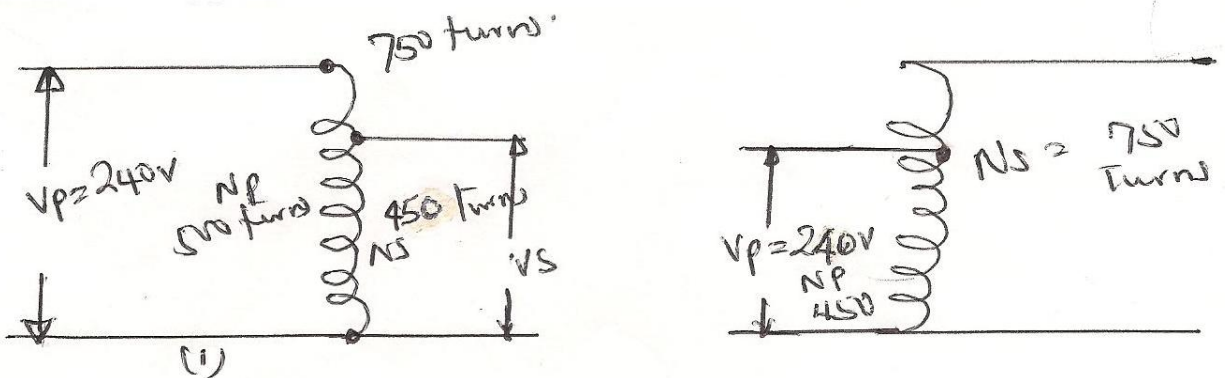 750 turns
Vp=240V
NP
500 turns
450 turns
NS
VS
(i)
NS = 750
Turns
Vp=240V
NP
450